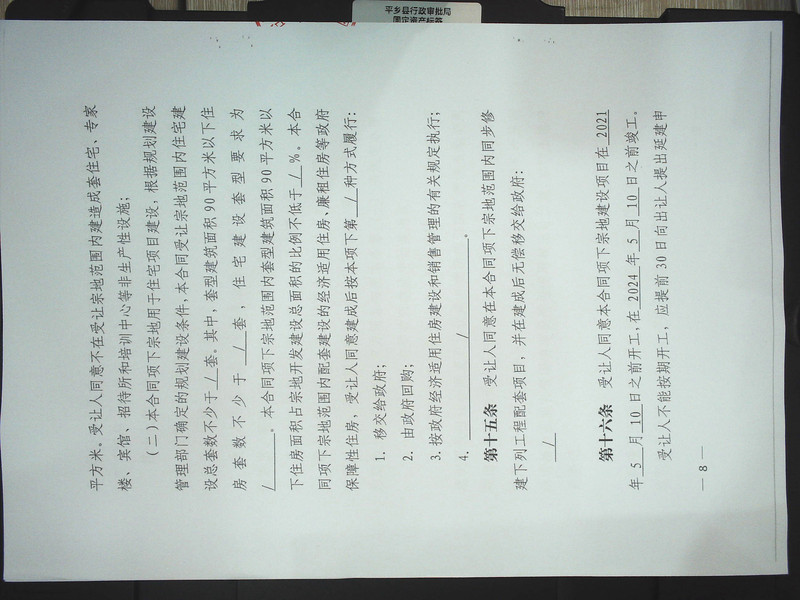 平乡县行政审批局
平方米。受让人同意不在受让宗地范围内建造成套住宅、专家
楼、宾馆、招待所和培训中心等非生产性设施；
（二）本合同项下宗地用于住宅项目建设，根据规划建设
管理部门确定的规划建设条件，本合同受让宗地范围内住宅建
设总套数不少于 / 套。其中，套型建筑面积 90 平方米以下住
房套数不少于 / 套，住宅建设套型要求为
/ 。本合同项下宗地范围内套型建筑面积 90 平方米以
下住房面积占宗地开发建设总面积的比例不低于 / %。本合
同项下宗地范围内配套建设的经济适用住房、廉租住房等政府
保障性住房，受让人同意建成后按本项下第 / 种方式履行：
1. 移交给政府；
2. 由政府回购；
3. 按政府经济适用住房建设和销售管理的有关规定执行；
4. / 。
第十五条 受让人同意在本合同项下宗地范围内同步修
建下列工程配套项目，并在建成后无偿移交给政府：
/
第十六条 受让人同意本合同项下宗地建设项目在 2021
年 5 月 10 日之前开工，在 2024 年 5 月 10 日之前竣工。
受让人不能按期开工，应提前 30 日向出让人提出延建申
— 8 —